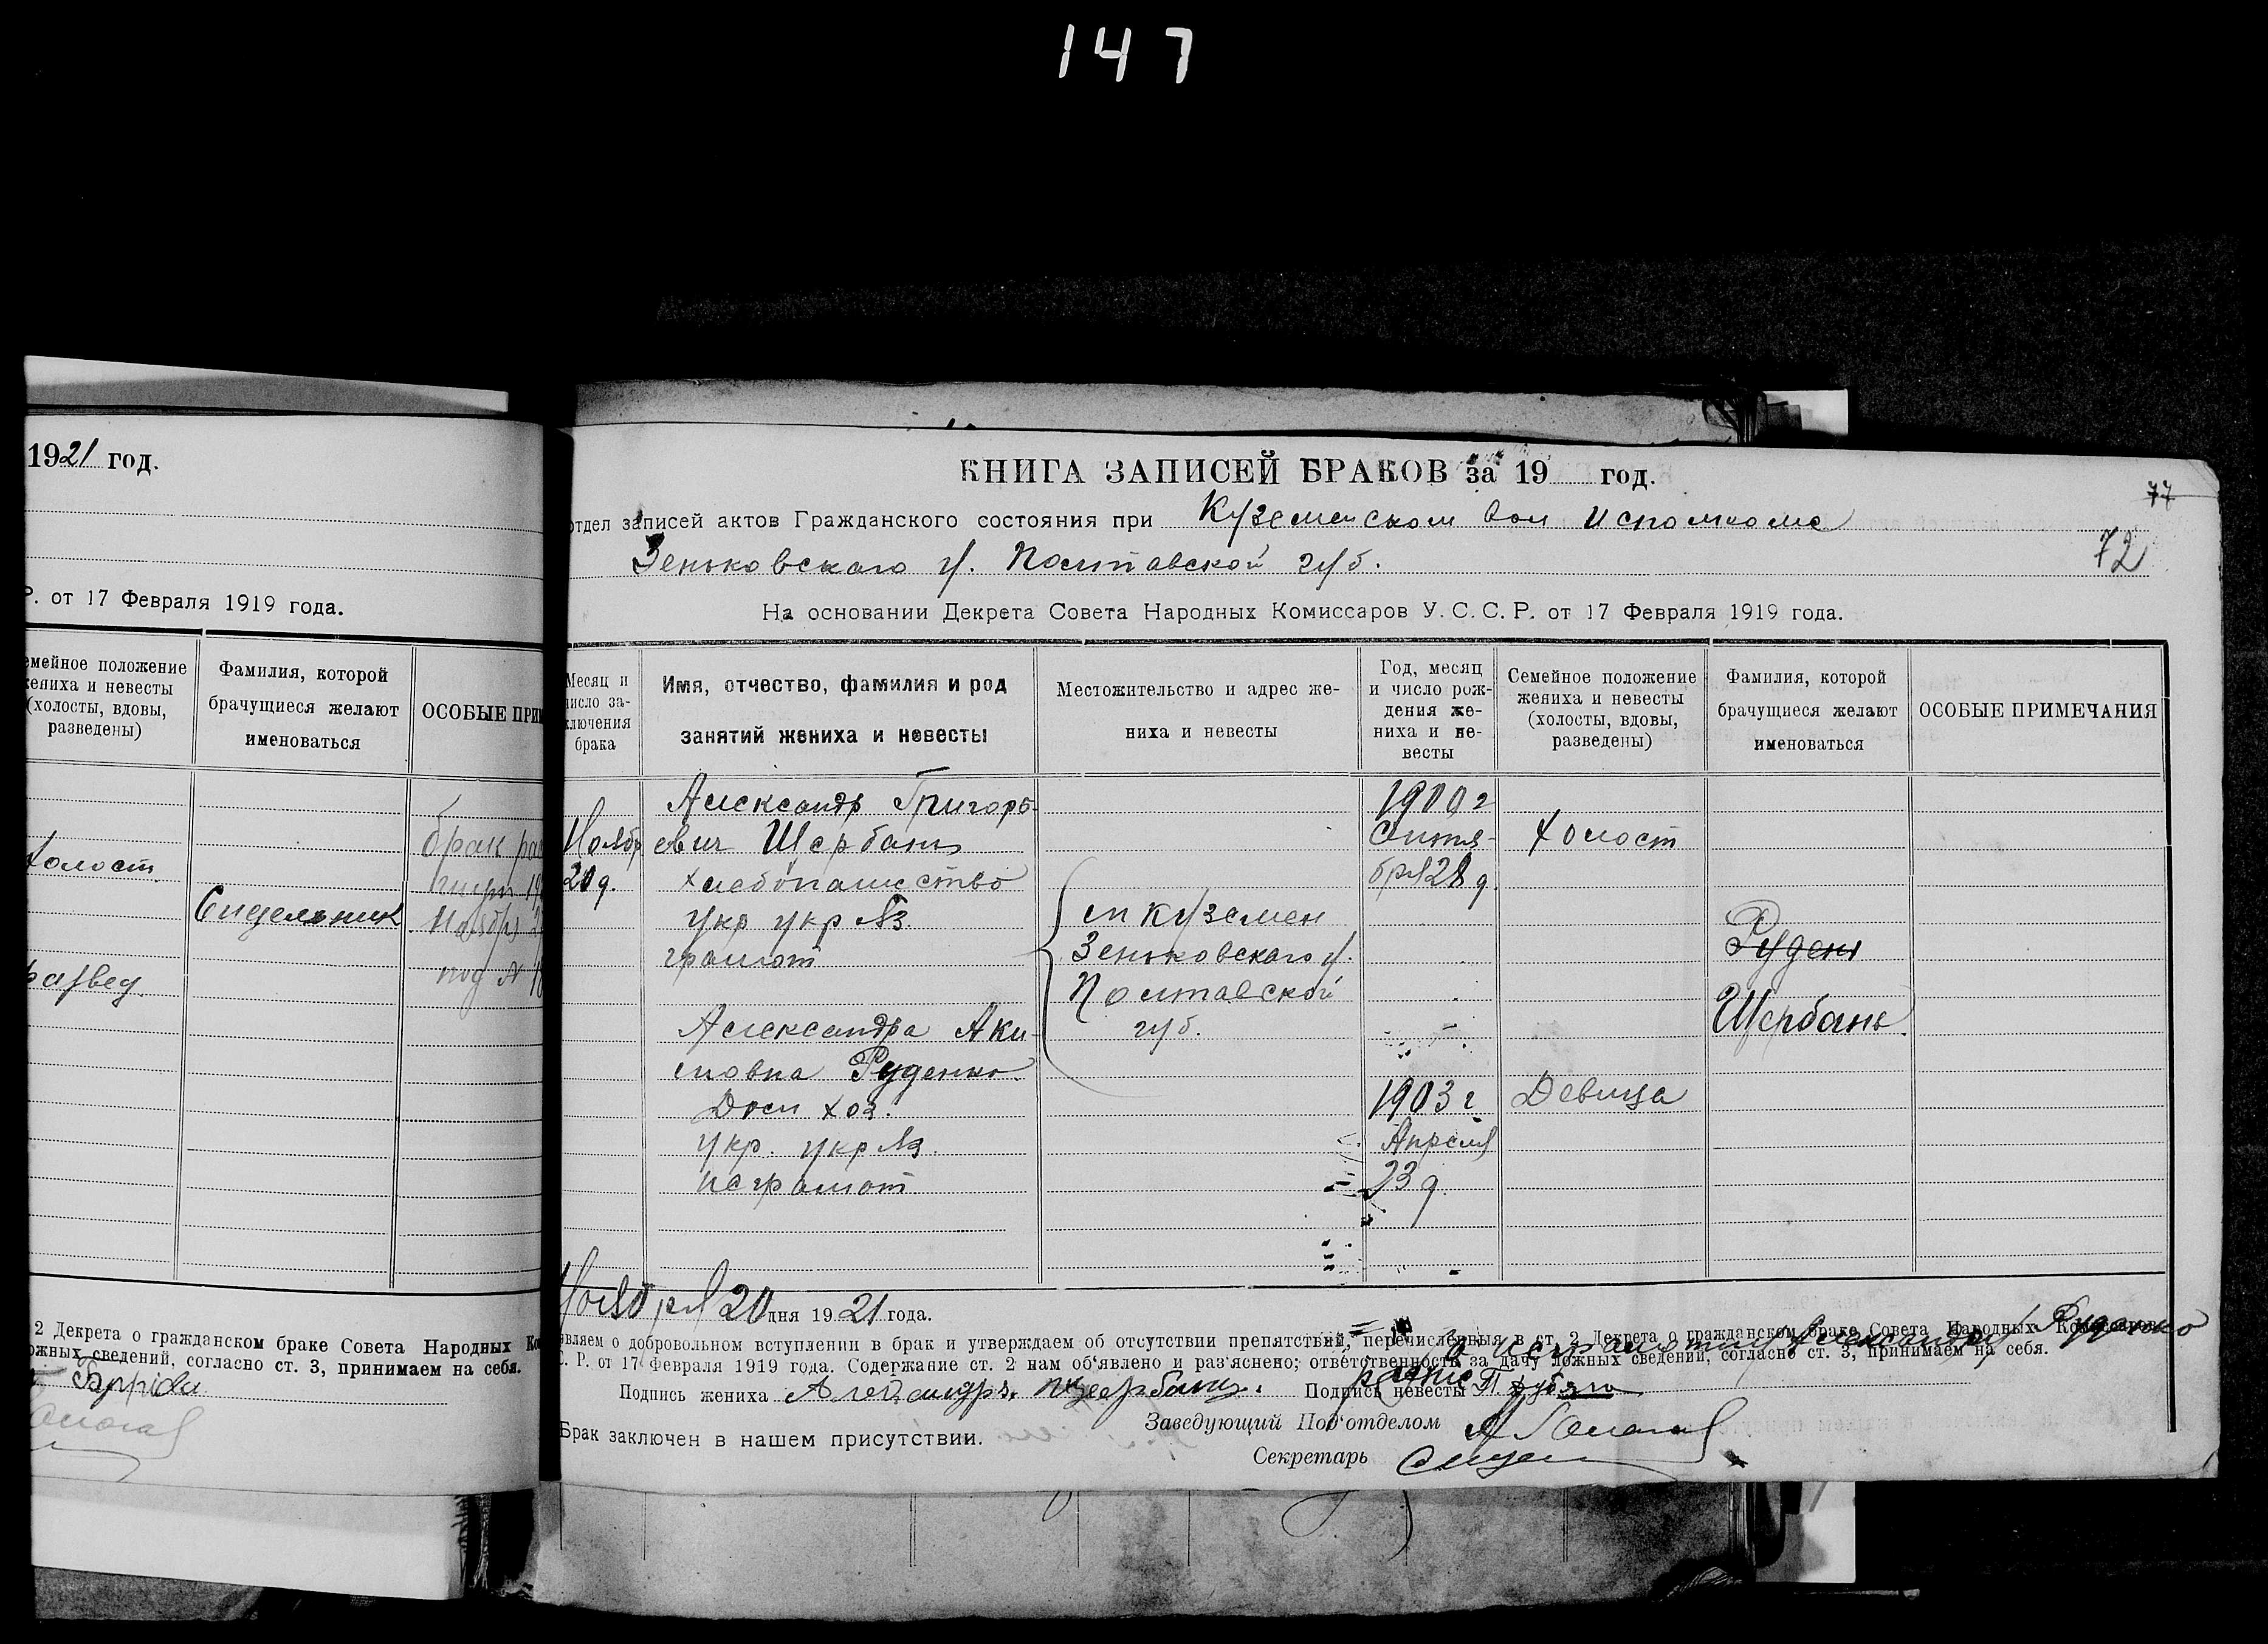 147
1921 год.
Р. от 17 Февраля 1919 года.
емейное положение
жениха и невесты
(холосты, вдовы,
разведены)
Фамилия, которой
брачущиеся желают
именоваться
ОСОБЫЕ ПРИМ
холост
развед.
Сидельник
брак
Ноябр
под №
2 Декрета о гражданском браке Совета Народных Ко
ожных сведений, согласно ст. 3, принимаем на себя.
КНИГА ЗАПИСЕЙ БРАКОВ за 19 год.
77
отдел записей актов Гражданского состояния при Куземенском вол Исполкоме
Зеньковскаго у. Полтавской губ.
72
На основании Декрета Совета Народных Комиссаров У.С.С.Р. от 17 Февраля 1919 года.
Месяц и
число за-
ключения
брака
Имя, отчество, фамилия и род
занятий жениха и невесты
Местожительство и адрес же-
ниха и невесты
Год, месяц
и число рож-
дения же-
ниха и не-
весты
Семейное положение
жениха и невесты
(холосты, вдовы,
разведены)
Фамилия, которой
брачущиеся желают
именоваться
ОСОБЫЕ ПРИМЕЧАНИЯ
Ноябр
20 д.
Александр Григорь-
евич Щербань
хлебопашество
укр укр яз
грамот
Александра Аки-
мовна Руденко
Дом хоз.
укр. укр яз.
неграмот
м Куземен
Зеньковскаго у.
Полтавской
губ.
1900 г
Сентя-
бря 28 д.
1903 г
Апреля
23 д.
Холост
Девица
Руден
Щербань
Ноября 20 дня 1921 года.
являем о добровольном вступлении в брак и утверждаем об отсутствии препятствий, перечисленных в ст. 2 Декрета о гражданском браке Совета Народных Комиссаров
С. Р. от 17 Февраля 1919 года. Содержание ст. 2 нам об'явлено и раз'яснено; ответственность за дачу ложных сведений, согласно ст. 3, принимаем на себя.
неграмотную Александру Руденко
Подпись жениха Александръ Щербань. Подпись невесты
Заведующий Под'отделом
Брак заключен в нашем присутствии.
Секретарь